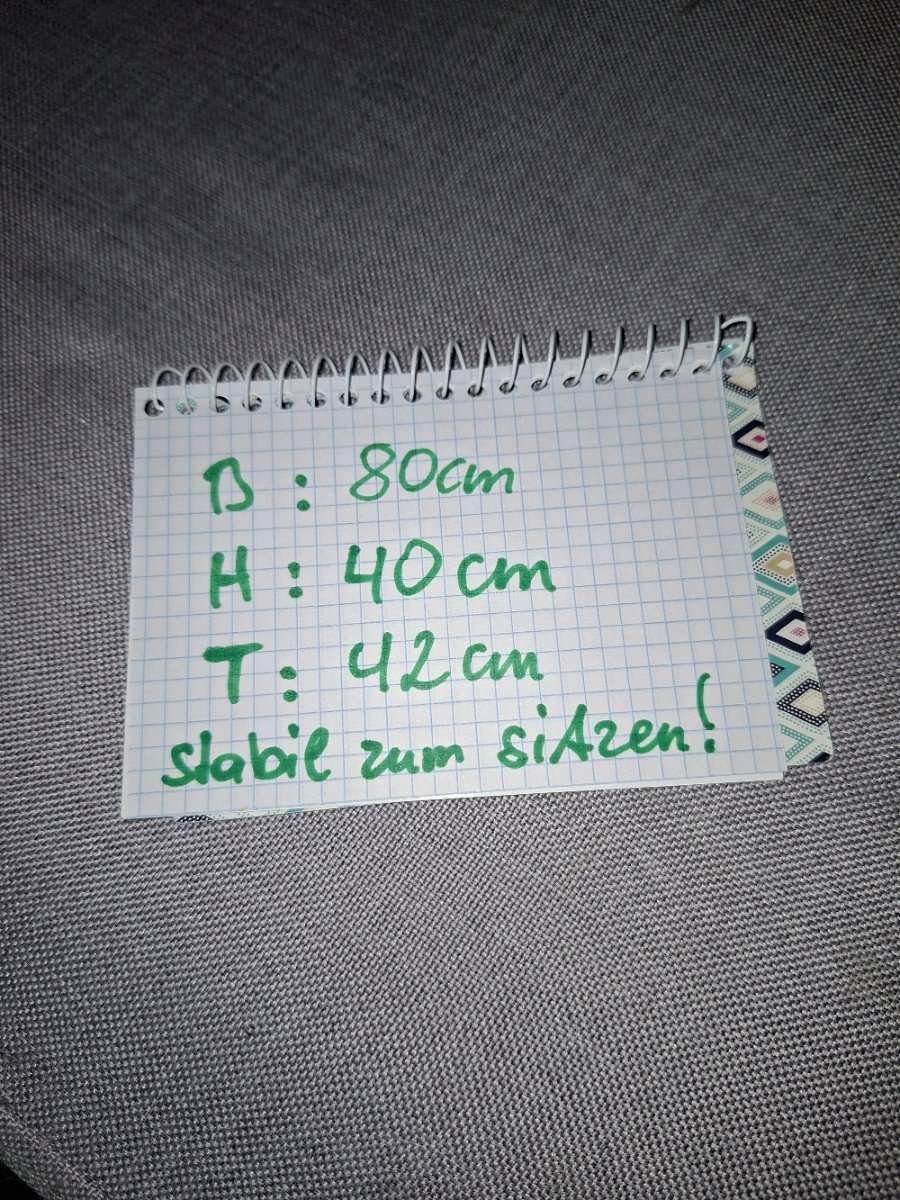 B: 80cm
H: 40cm
T: 42cm
stabil zum sitzen!